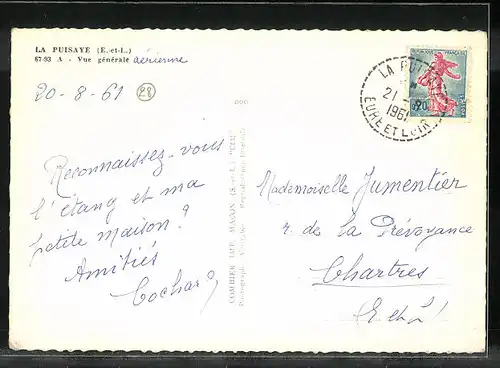 LA PUISAYE (E.-et-L.)
67-93 A - Vue générale aérienne
20-8-61 28
Reconnaissez-vous
l'étang et ma
petite maison ?
Amitiés
COMBIER IMP. MACON (S.-et-L.) "CIM"
Mademoiselle Jumentier
r. de la Prévoyance
Chartres
E et L
LA PUISAYE
21
1961
EURE ET LOIR
0,20